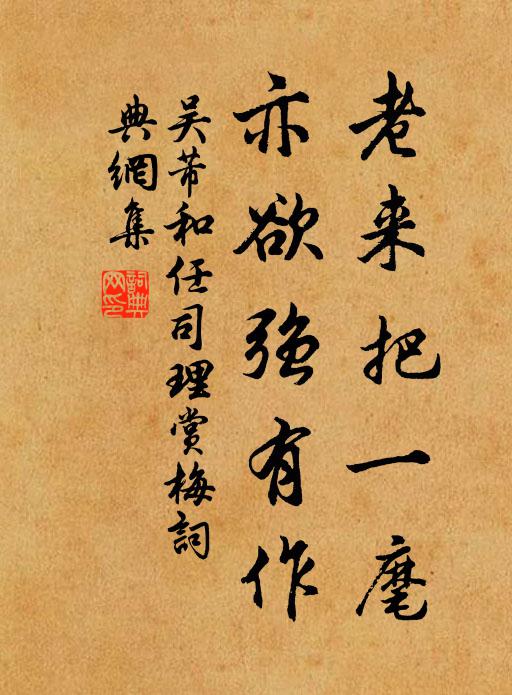 老来把一麾
亦欲强有作
吴芾和任司理赏梅詞
典網集
詞典
网印